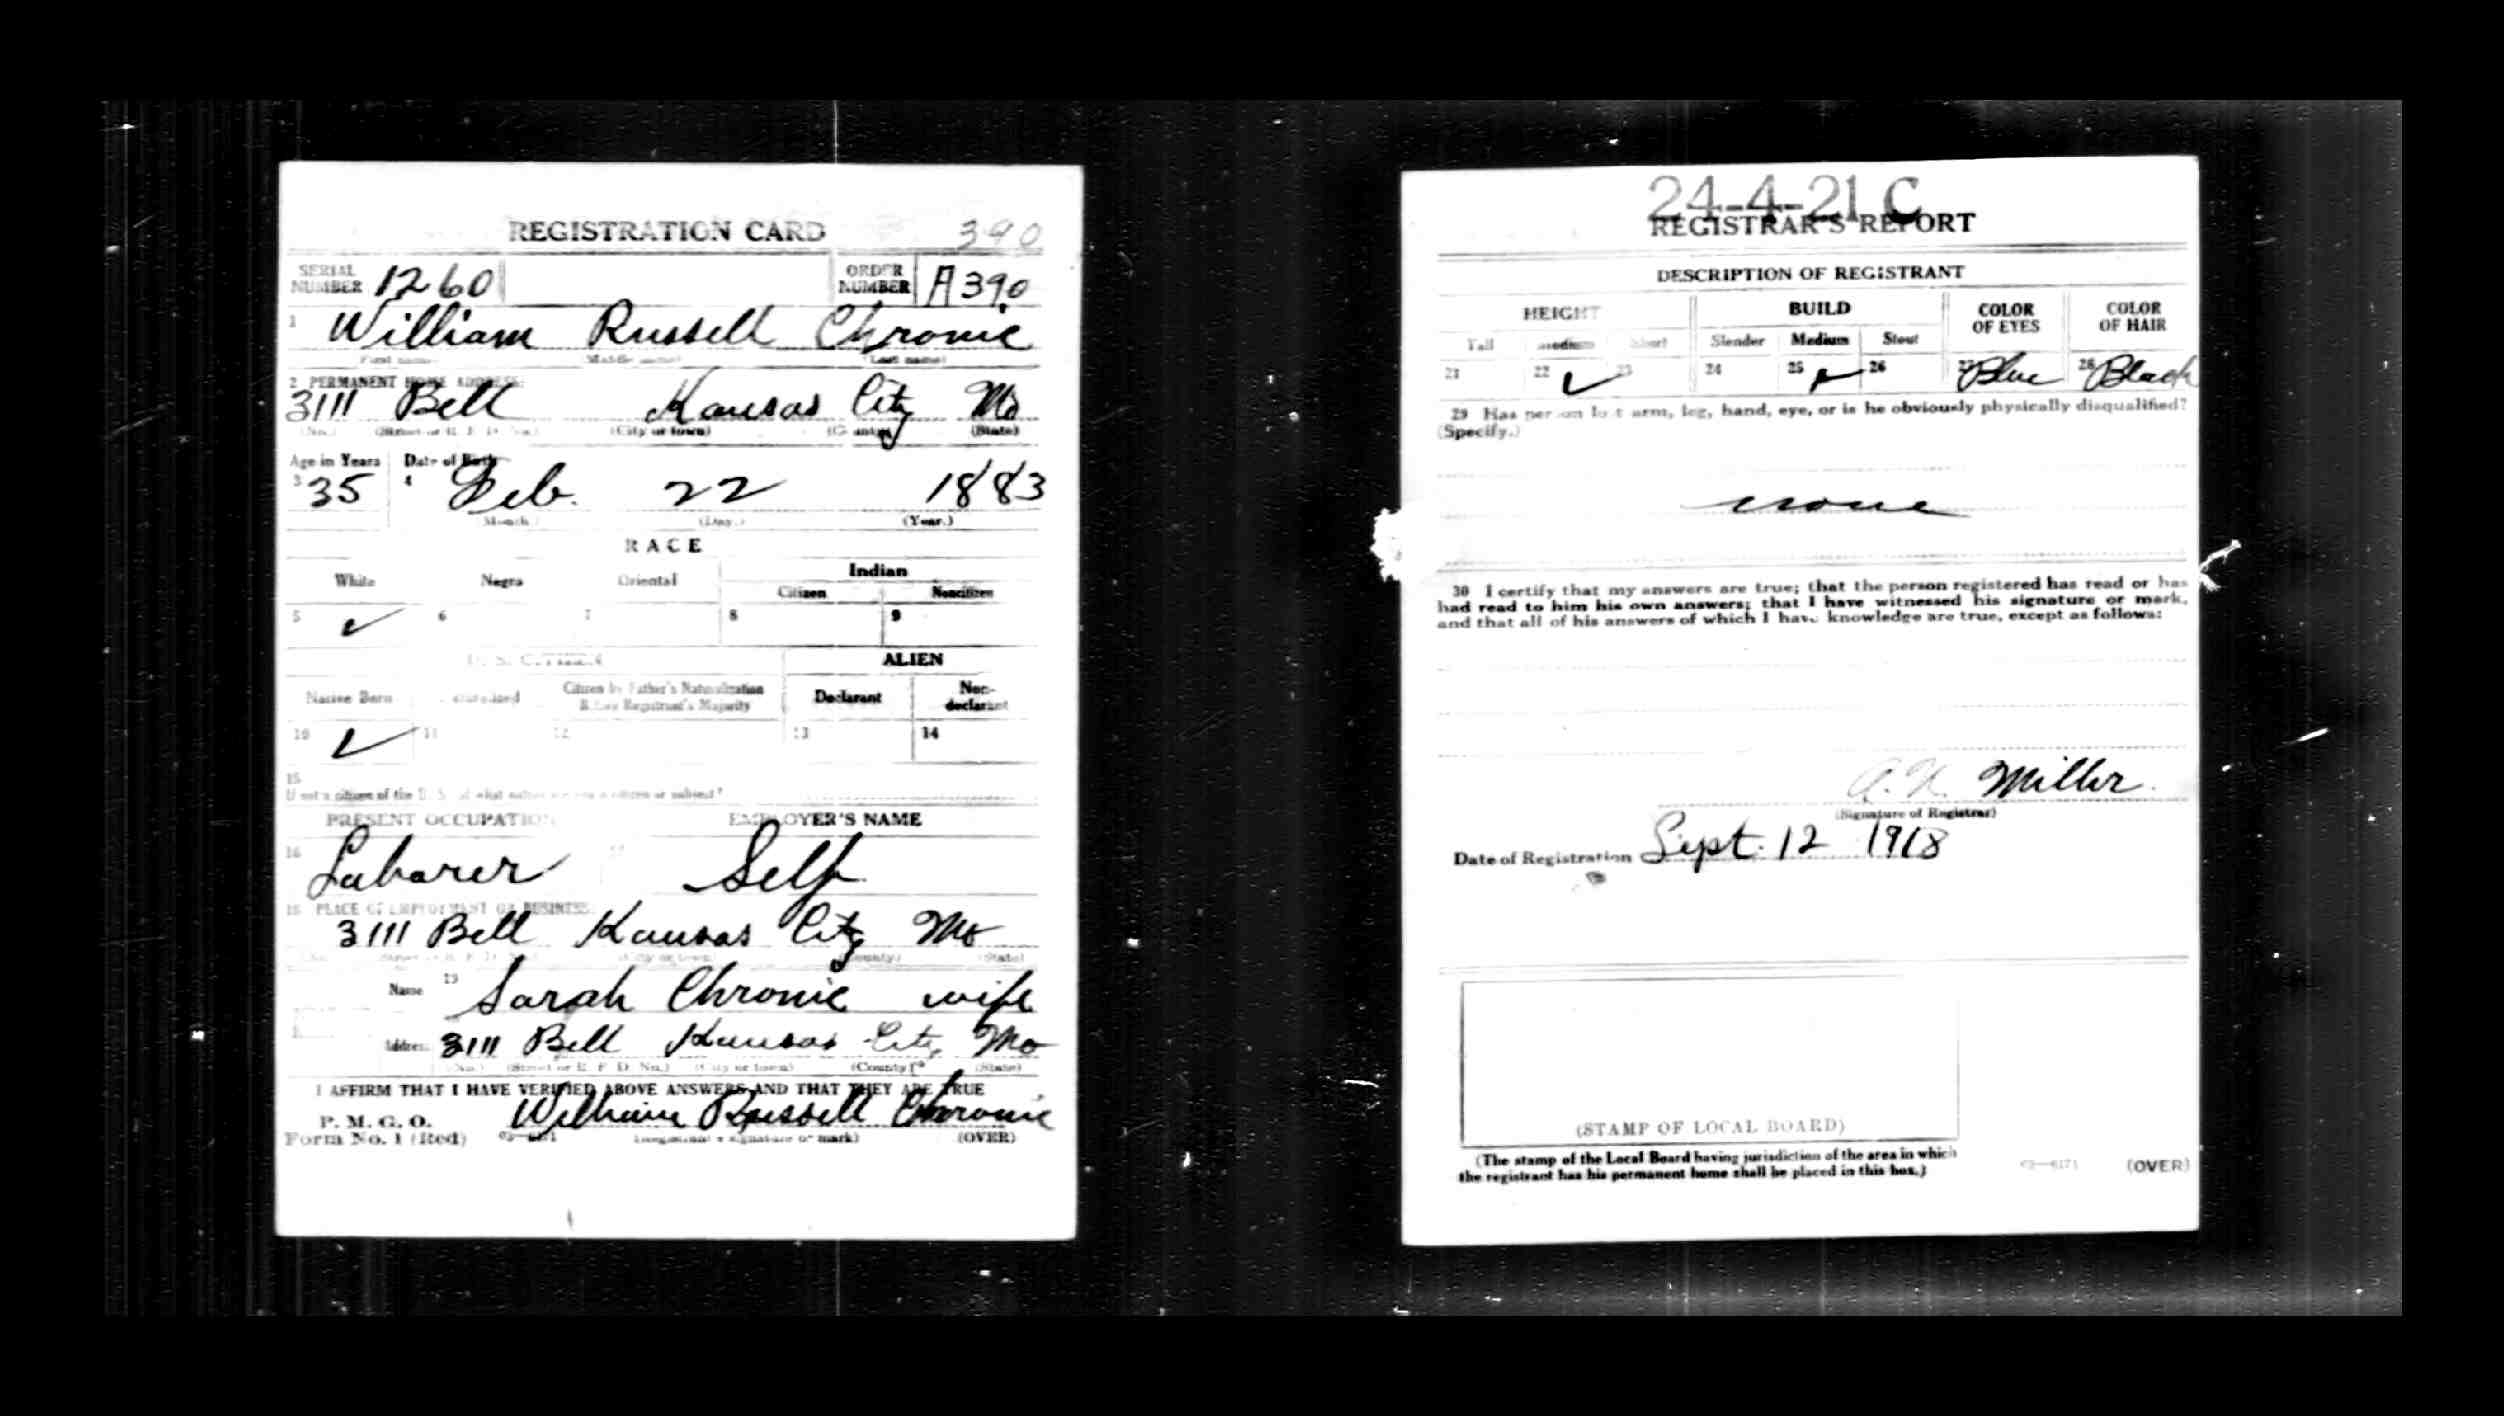 REGISTRATION CARD 390
SERIAL NUMBER 1260 ORDER NUMBER A390
1 William Russell Chronic
First name (Middle name) (Last name)
2 PERMANENT HOME ADDRESS:
3111 Bell Kansas City Mo
(No.) (Street or R. F. D. No.) (City or town) (County) (State)
Age in Years Date of Birth
3 35 4 Feb. 22 1883
(Month.) (Day.) (Year.)
RACE
White Negro Oriental Indian
Citizen Noncitizen
5 ✓ 6 7 8 9
U. S. CITIZEN ALIEN
Native Born Naturalized Citizen by Father's Naturalization Before Registrant's Majority Declarant Non-declarant
10 ✓ 11 12 13 14
15
If not a citizen of the U. S., of what nation are you a citizen or subject?
PRESENT OCCUPATION EMPLOYER'S NAME
16 Laborer Self
18 PLACE OF EMPLOYMENT OR BUSINESS:
3111 Bell Kansas City Mo
(City or town) (County) (State)
Name 19 Sarah Chronic wife
Address 3111 Bell Kansas City, Mo
(No.) (Street or R. F. D. No.) (City or town) (County) (State)
I AFFIRM THAT I HAVE VERIFIED ABOVE ANSWERS AND THAT THEY ARE TRUE
P. M. G. O.
Form No. 1 (Red) William Russell Chronic
(Registrant's signature or mark) (OVER)
24-4-21 C
REGISTRAR'S REPORT
DESCRIPTION OF REGISTRANT
HEIGHT BUILD COLOR OF EYES COLOR OF HAIR
Tall Medium Short Slender Medium Stout
21 22 ✓ 23 24 25 ✓ 26 27 Blue 28 Black
29 Has person lost arm, leg, hand, eye, or is he obviously physically disqualified?
(Specify.)
none
30 I certify that my answers are true; that the person registered has read or has
had read to him his own answers; that I have witnessed his signature or mark,
and that all of his answers of which I have knowledge are true, except as follows:
Miller
(Signature of Registrar)
Date of Registration Sept. 12 1918
(STAMP OF LOCAL BOARD)
(The stamp of the Local Board having jurisdiction of the area in which
the registrant has his permanent home shall be placed in this box.)
03—6171 (OVER)